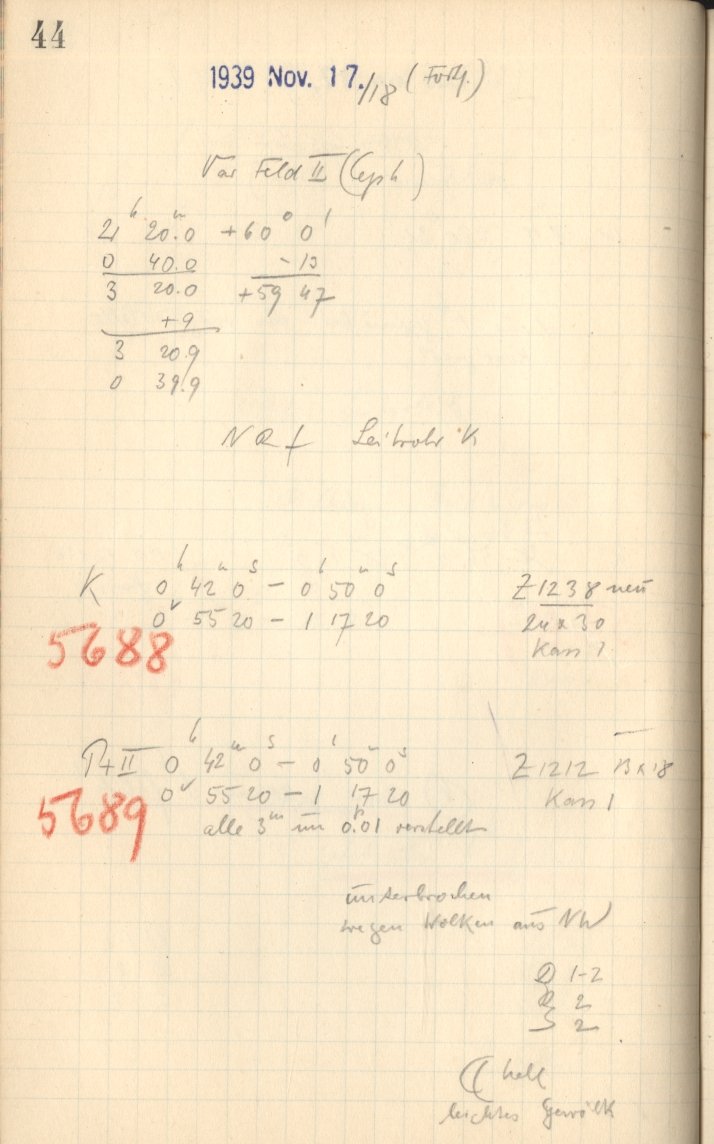 44
1939 Nov. 17./18 (Forts.)
Var Feld II (Ceph)
21 h 20.0 m +60° 0'
0 40.0 - 13
3 20.0 +59 47
+9
3 20.9
0 39.9
Leitrohr K
K 0 h 42 m 0 s - 0 h 50 m 0 s Z1238 neu
0 55 20 - 1 17 20 24 x 30
5688 Kass 1
II 0 h 42 m 0 s - 0 h 50 m 0 s Z1212 13 x 18
0 55 20 - 1 17 20 Kass 1
5689 alle 3 m um 0.01 verstellt
unterbrochen
wegen Wolken aus NW
1-2
2
2
hell
leichtes Gewölk